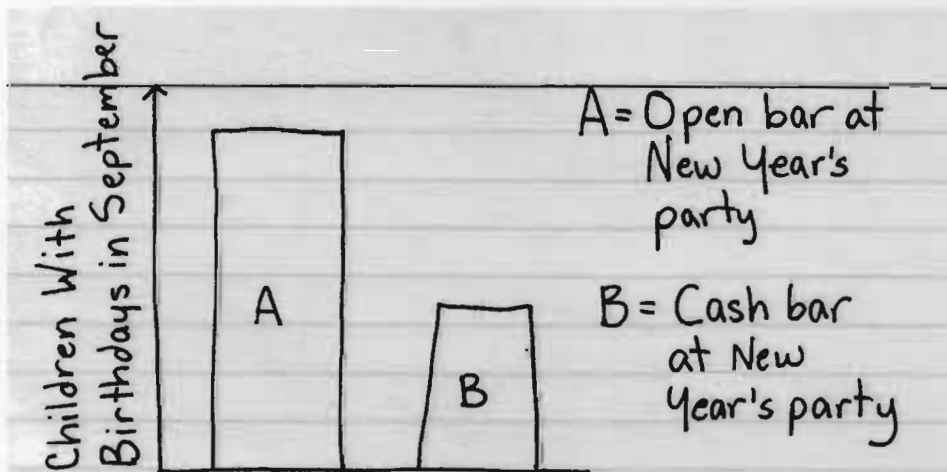 Children With
Birthdays in September
A
B
A = Open bar at
New Year's
party
B = Cash bar
at New
Year's party